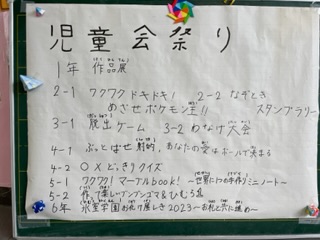 児童会祭り
1年 作品展
2-1 ワクワクドキドキ! 2-2 なぞとき
めざせポケモン王!! スタンプラリー
3-1 脱出ゲーム 3-2 わなげ大会
4-1 ぶっとばせ射的, あなたの愛はボールで決まる
4-2 ○×どっきりクイズ
5-1 ワクワク!マーブルbook! 〜世界に1つの手作りミニノート〜
5-2 作って楽しいブンブンゴマ&ひむろ
6年 氷室学園お化け屋しき2023〜お札と共に進め〜